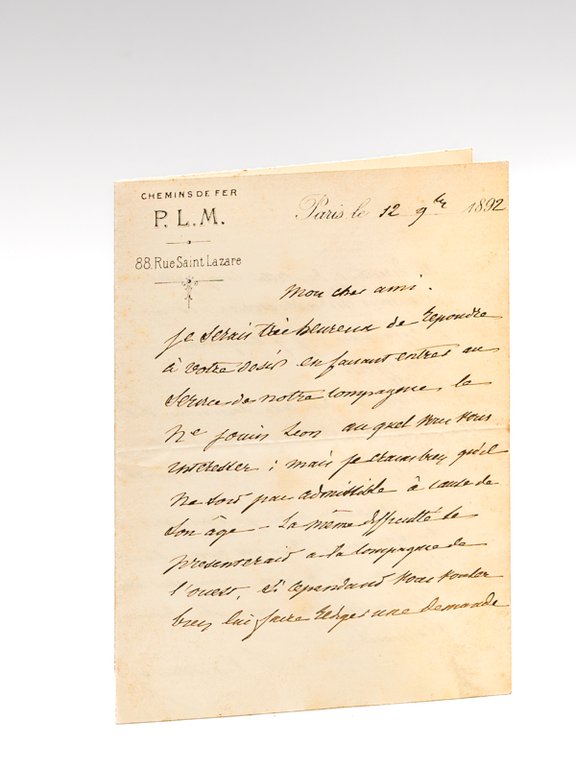 CHEMINS DE FER
P. L. M.
88, Rue Saint Lazare
Paris, le 12 9bre 1892
Mon cher ami.
je serais très heureux de répondre
à votre désir en faisant entrer au
service de notre compagnie le
Ne Jouin Leon au quel vous vous
intéressez ; mais je crains bien qu'il
ne soit pas admissible à cause de
son âge - La même difficulté se
présenterait à la compagnie de
l'ouest, si cependant vous voulez
bien lui faire rédiger une demande